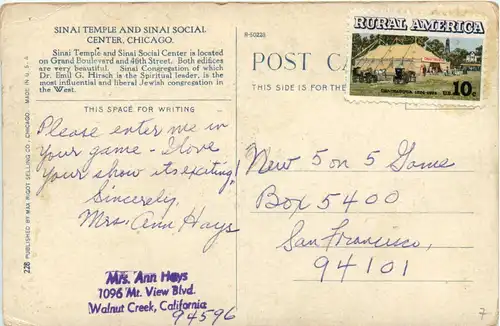 SINAI TEMPLE AND SINAI SOCIAL
CENTER, CHICAGO.
Sinai Temple and Sinai Social Center is located
on Grand Boulevard and 46th Street. Both edifices
are very beautiful. Sinai Congregation of which
Dr. Emil G. Hirsch is the Spiritual leader, is the
most influential and liberal Jewish congregation in
the West.
THIS SPACE FOR WRITING
Please enter me in
your game - I love
your show its exciting!
Sincerely,
Mrs. Ann Hays
Mrs. Ann Hays
1096 Mt. View Blvd.
Walnut Creek, California
94596
228 PUBLISHED BY MAX RIGOT SELLING CO., CHICAGO.
POST CA
THIS SIDE IS FOR THE
RURAL AMERICA
CHAUTAUQUA 1874 1974 U.S.
10c
New 5 on 5 Game
Box 5400
San Francisco,
94101
7